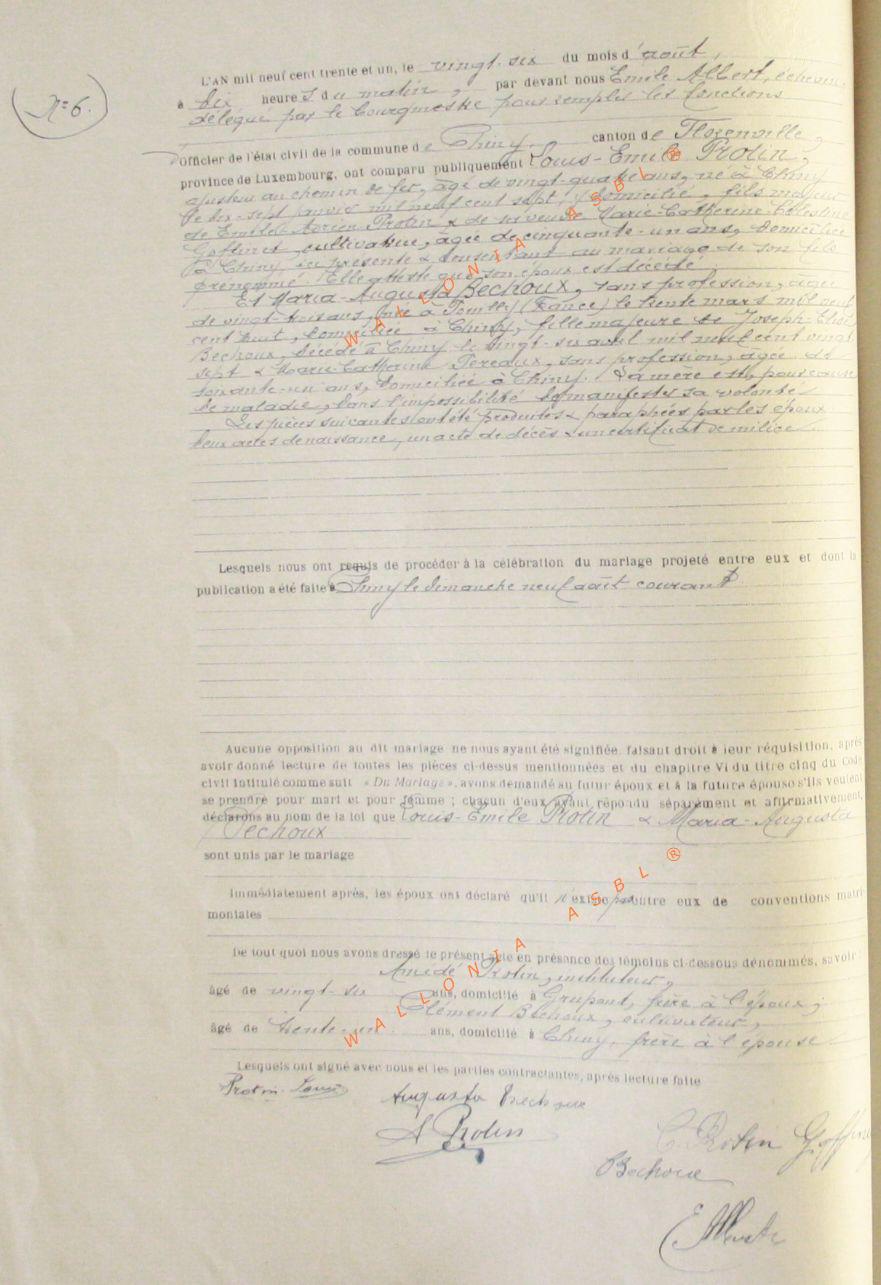 N° 6.
L'AN mil neuf cent trente et un, le vingt-six du mois d'août,
à dix heures du matin, par devant nous Emile Albert, échevin
délégué par le Bourgmestre pour remplir les fonctions
d'officier de l'état civil de la commune de Chiny, canton de Florenville,
province de Luxembourg, ont comparu publiquement Louis-Emile Protin,
ajusteur au chemin de fer, âgé de vingt-quatre ans, né à Chiny
le dix-sept janvier mil neuf cent sept, y domicilié, fils majeur
de Emile-Adrien Protin & de sa veuve Marie-Catherine-Célestine
Goffinet, cultivatrice, âgée de cinquante-un ans, domiciliée
à Chiny ici présente & consentant au mariage de son fils
prénommé. Elle atteste que son époux est décédé;
Et Maria-Augusta Bechoux, sans profession, âgée
de vingt-trois ans, née à Pouilly (France) le trente mars mil neuf
cent huit, domiciliée à Chiny, fille majeure de Joseph-
Bechoux, décédé à Chiny le vingt-six avril mil neuf cent vingt
sept & Marie-Catherine Pereaux, sans profession, âgée de
soixante-un ans, domiciliée à Chiny. La mère est, pour cause
de maladie, dans l'impossibilité de manifester sa volonté
Les pièces suivantes ont été produites & paraphées par les époux
deux actes de naissance, un acte de décès & un certificat de milice.
Lesquels nous ont requis de procéder à la célébration du mariage projeté entre eux et dont la
publication a été faite à Chiny le dimanche neuf août courant
Aucune opposition au dit mariage ne nous ayant été signifiée, faisant droit à leur réquisition, après
avoir donné lecture de toutes les pièces ci-dessus mentionnées et du chapitre VI du titre cinq du Code
civil intitulé comme suit « Du Mariage », avons demandé au futur époux et à la future épouse s'ils veulent
se prendre pour mari et pour femme ; chacun d'eux ayant répondu séparément et affirmativement,
déclarons au nom de la loi que Louis-Emile Protin & Maria-Augusta
Bechoux
sont unis par le mariage
Immédiatement après, les époux ont déclaré qu'il n'existe pas entre eux de conventions matri-
moniales
De tout quoi nous avons dressé le présent acte en présence des témoins ci-dessous dénommés, savoir :
Amedé Protin, instituteur,
âgé de vingt-six ans, domicilié à Grupont, frère à l'époux;
Clément Bechoux, cultivateur,
âgé de trente-un ans, domicilié à Chiny, frère à l'épouse
Lesquels ont signé avec nous et les parties contractantes, après lecture faite
Protin Louis
Augusta Bechoux
A Protin
C. Protin Goffinet
Bechoux
E Albert
WALLONIA ASBL ®
WALLONIA ASBL ®